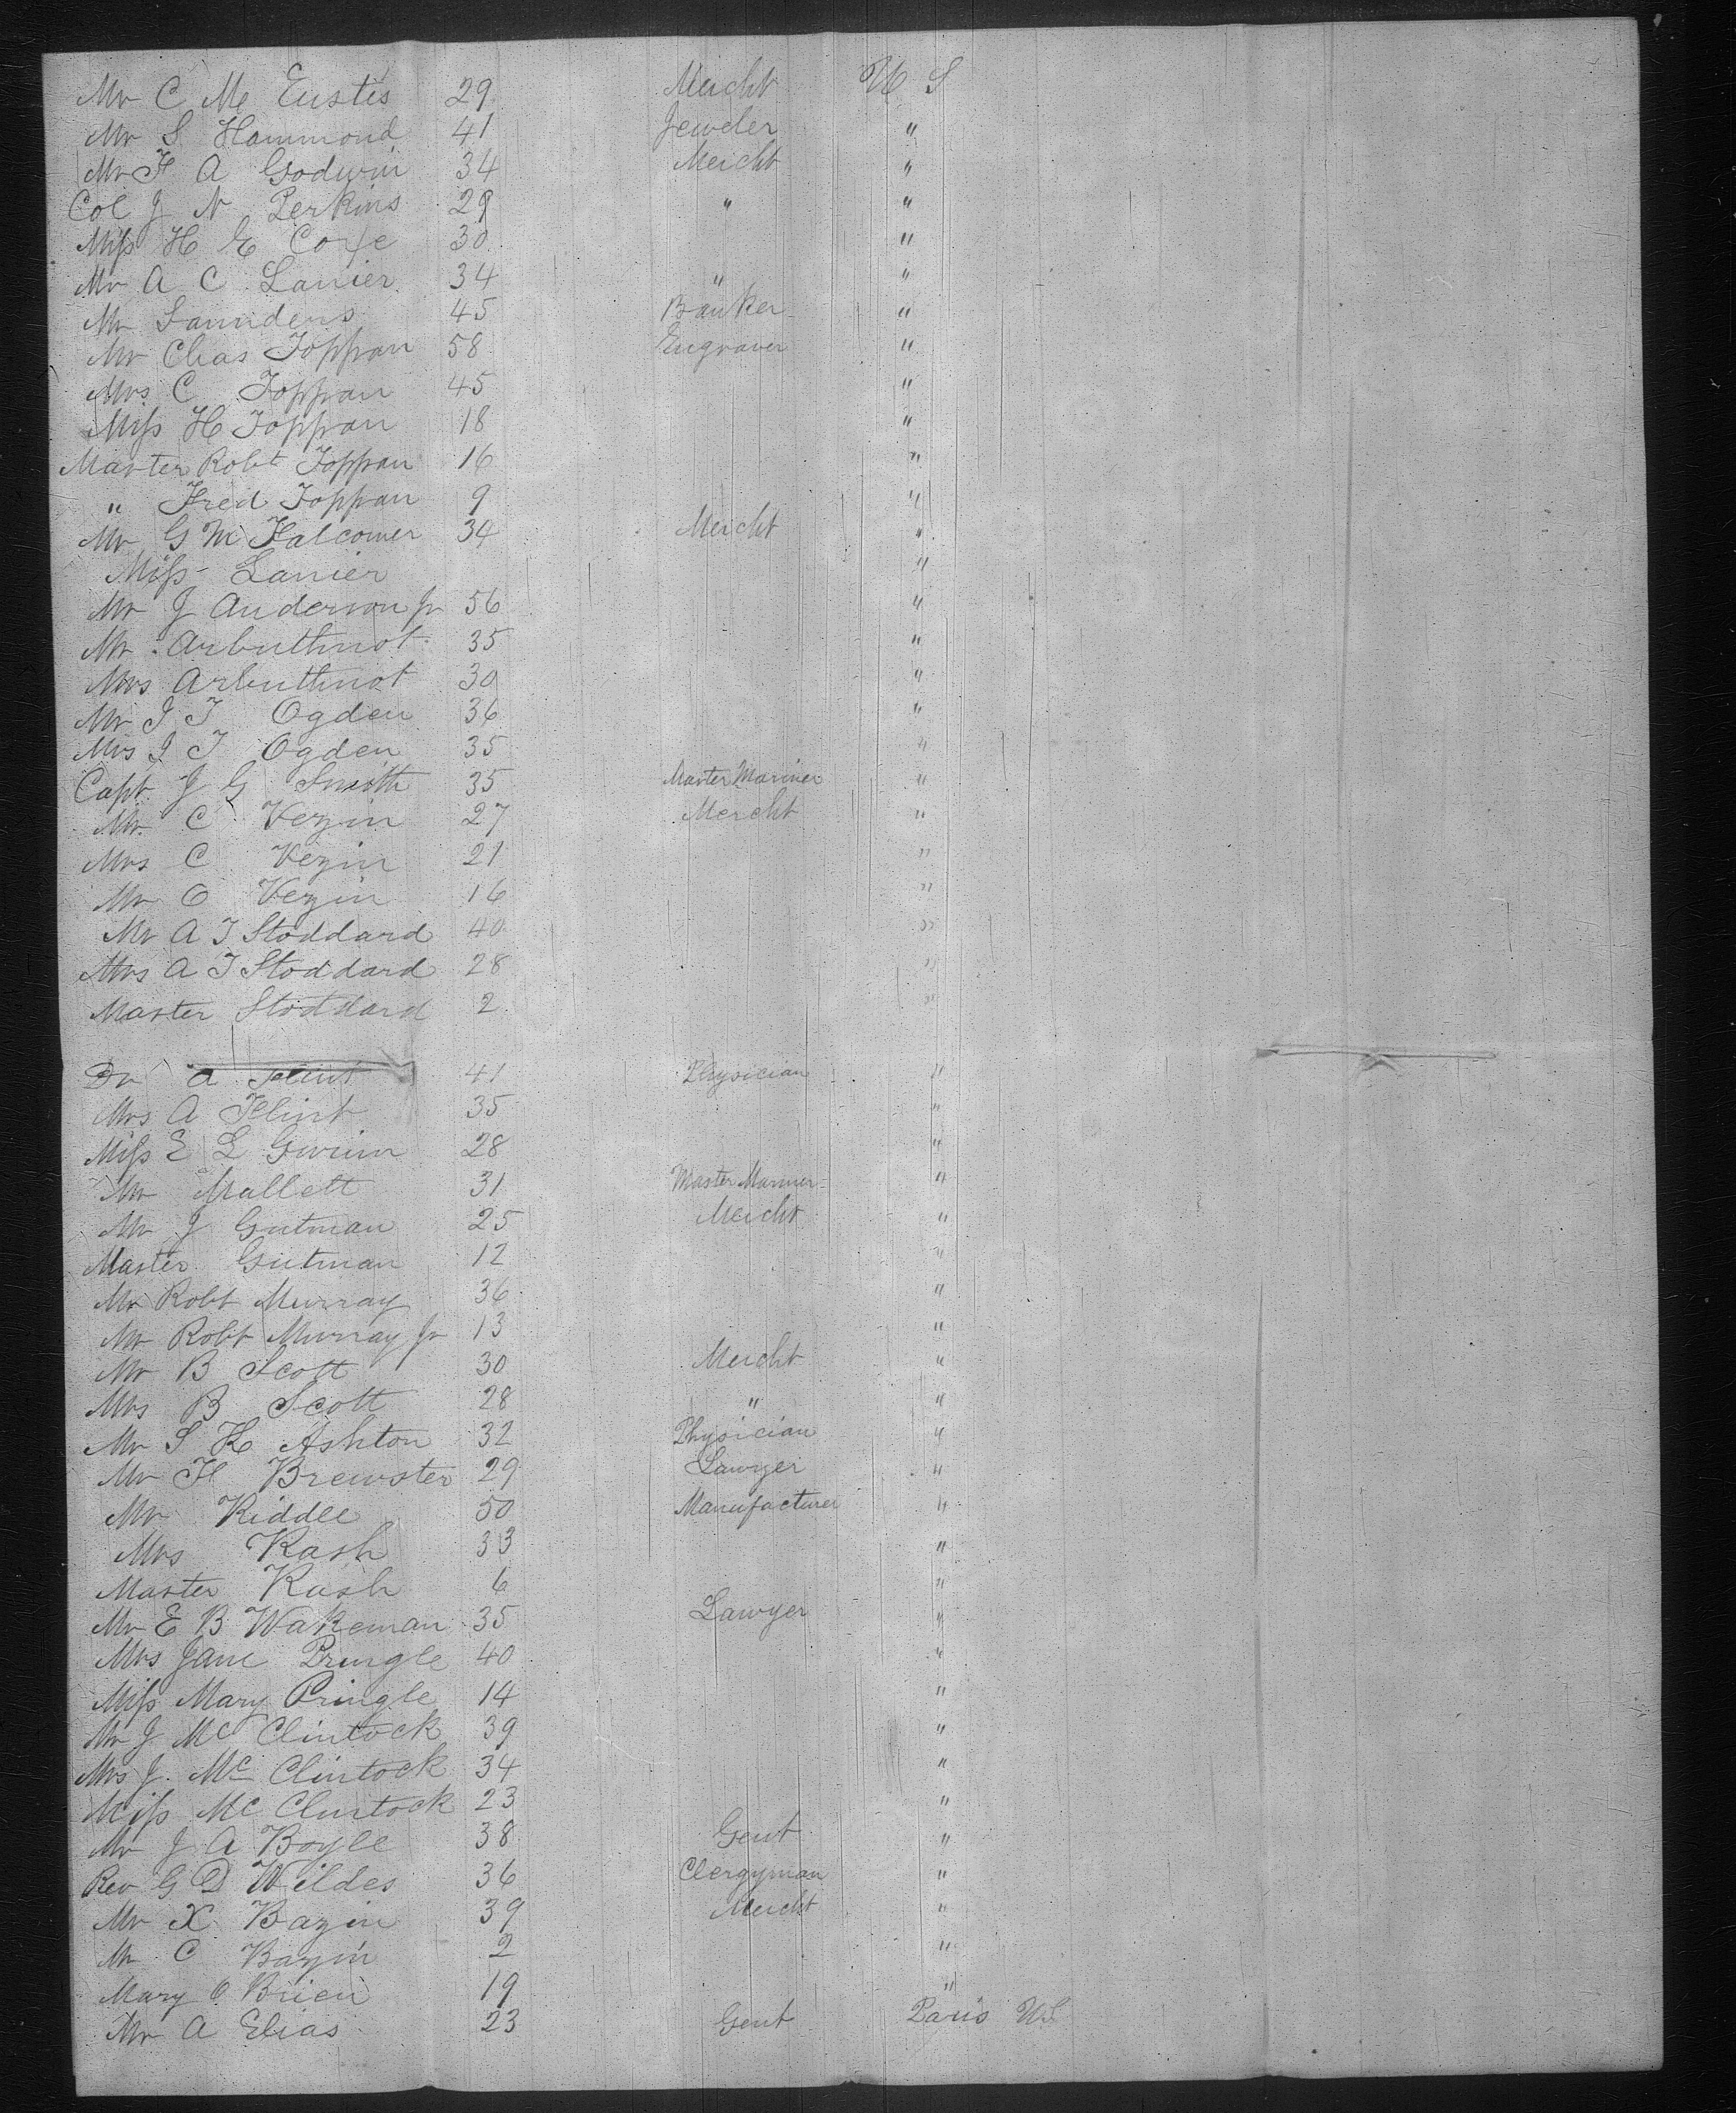 Mr C M Eustis 29 Mercht U S
Mr S Hammond 41 Jeweler "
Mr F A Godwin 34 Mercht "
Col J N Perkins 29 " "
Miss H E Coxe 30 "
Mr A C Lanier 34 " "
Mr Saunders 45 Banker "
Mr Chas Toppan 58 Engraver "
Mrs C Toppan 45 "
Miss H Toppan 18 "
Master Robt Toppan 16 "
" Fred Toppan 9 "
Mr G M Falconer 34 Mercht "
Miss Lanier "
Mr J Anderson Jr 56 "
Mr Arbuthnot 35 "
Mrs Arbuthnot 30 "
Mr J T Ogden 36 "
Mrs J T Ogden 35 "
Capt J G Smith 35 Master Mariner "
Mr C Vezin 27 Mercht "
Mrs C Vezin 21 "
Mr O Vezin 16 "
Mr A T Stoddard 40 "
Mrs A T Stoddard 28 "
Master Stoddard 2 "
Dr A Flint 41 Physician "
Mrs A Flint 35 "
Miss E L Gwinn 28 "
Mr Mallett 31 Master Mariner "
Mr J Gutman 25 Mercht "
Master Gutman 12 "
Mr Robt Murray 36 "
Mr Robt Murray Jr 13 "
Mr B Scott 30 Mercht "
Mrs B Scott 28 " "
Mr S K Ashton 32 Physician "
Mr H Brewster 29 Lawyer "
Mr Riddle 50 Manufacturer "
Mrs Rash 33 "
Master Rash 6 "
Mr E B Wakeman 35 Lawyer "
Mrs Jane Pringle 40 "
Miss Mary Pringle 14 "
Mr J Mc Clintock 39 "
Mrs J. Mc Clintock 34 "
Miss Mc Clintock 23 "
Mr J A Boyle 38 Gent "
Rev G D Wildes 36 Clergyman "
Mr X Bazin 39 Mercht "
Mr C Bazin 2 "
Mary O Brien 19 "
Mr A Elias 23 Gent Paris US